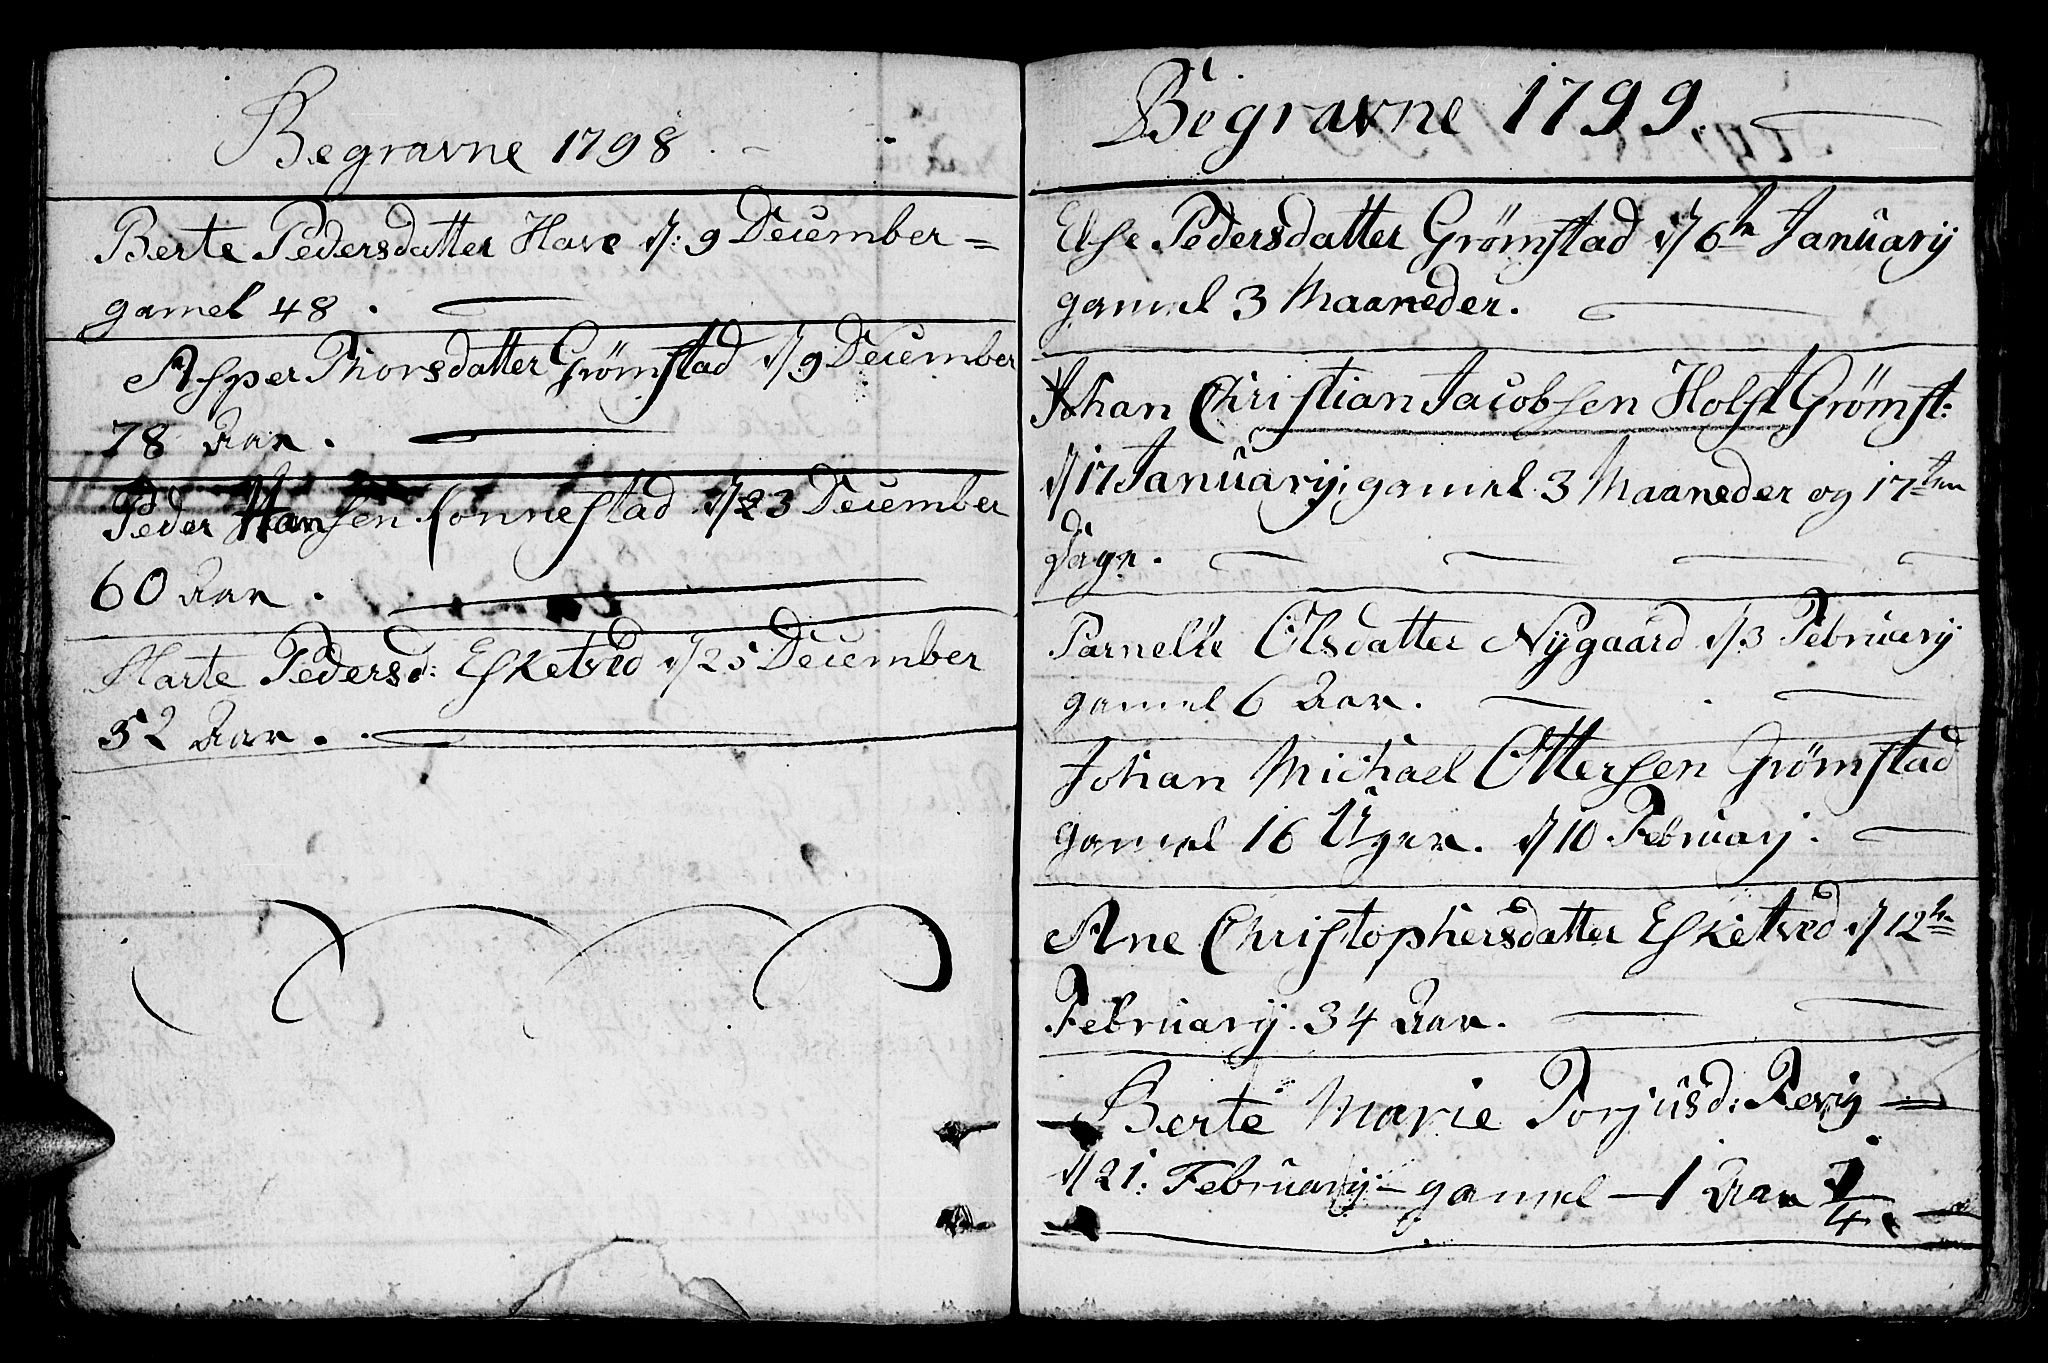 Begravne 1798.
Berte Pedersdatter Have d: 9 December =
gamel 48.
Asper Thorsdatter Grømstad d 9 December
78 Aar.
Peder Hansen Fonnestad d 23 December
60 Aar.
Marte Pedersd: Esketved d 25 December
52 Aar.
Begravne 1799.
Else Pedersdatter Grømstad d 6te Januarij
gamel 3 Maaneder.
Johan Christian Jacobsen Holst Grømst:
d 17 Januarij, gamel 3 Maaneder og 17ten
Dage.
Parnelle Olsdatter Nygaard d 3 Februarij
gamel 6 Aar.
Johan Michael Ottersen Grømstad
gamel 16 Uger. d 10 Februarj.
Ane Christophersdatter Esketved d 12te
Februarij. 34 Aar.
Berte Marie Torjusd: Fevig
d 21: Februarij - gamel - 1 Aar 1/4